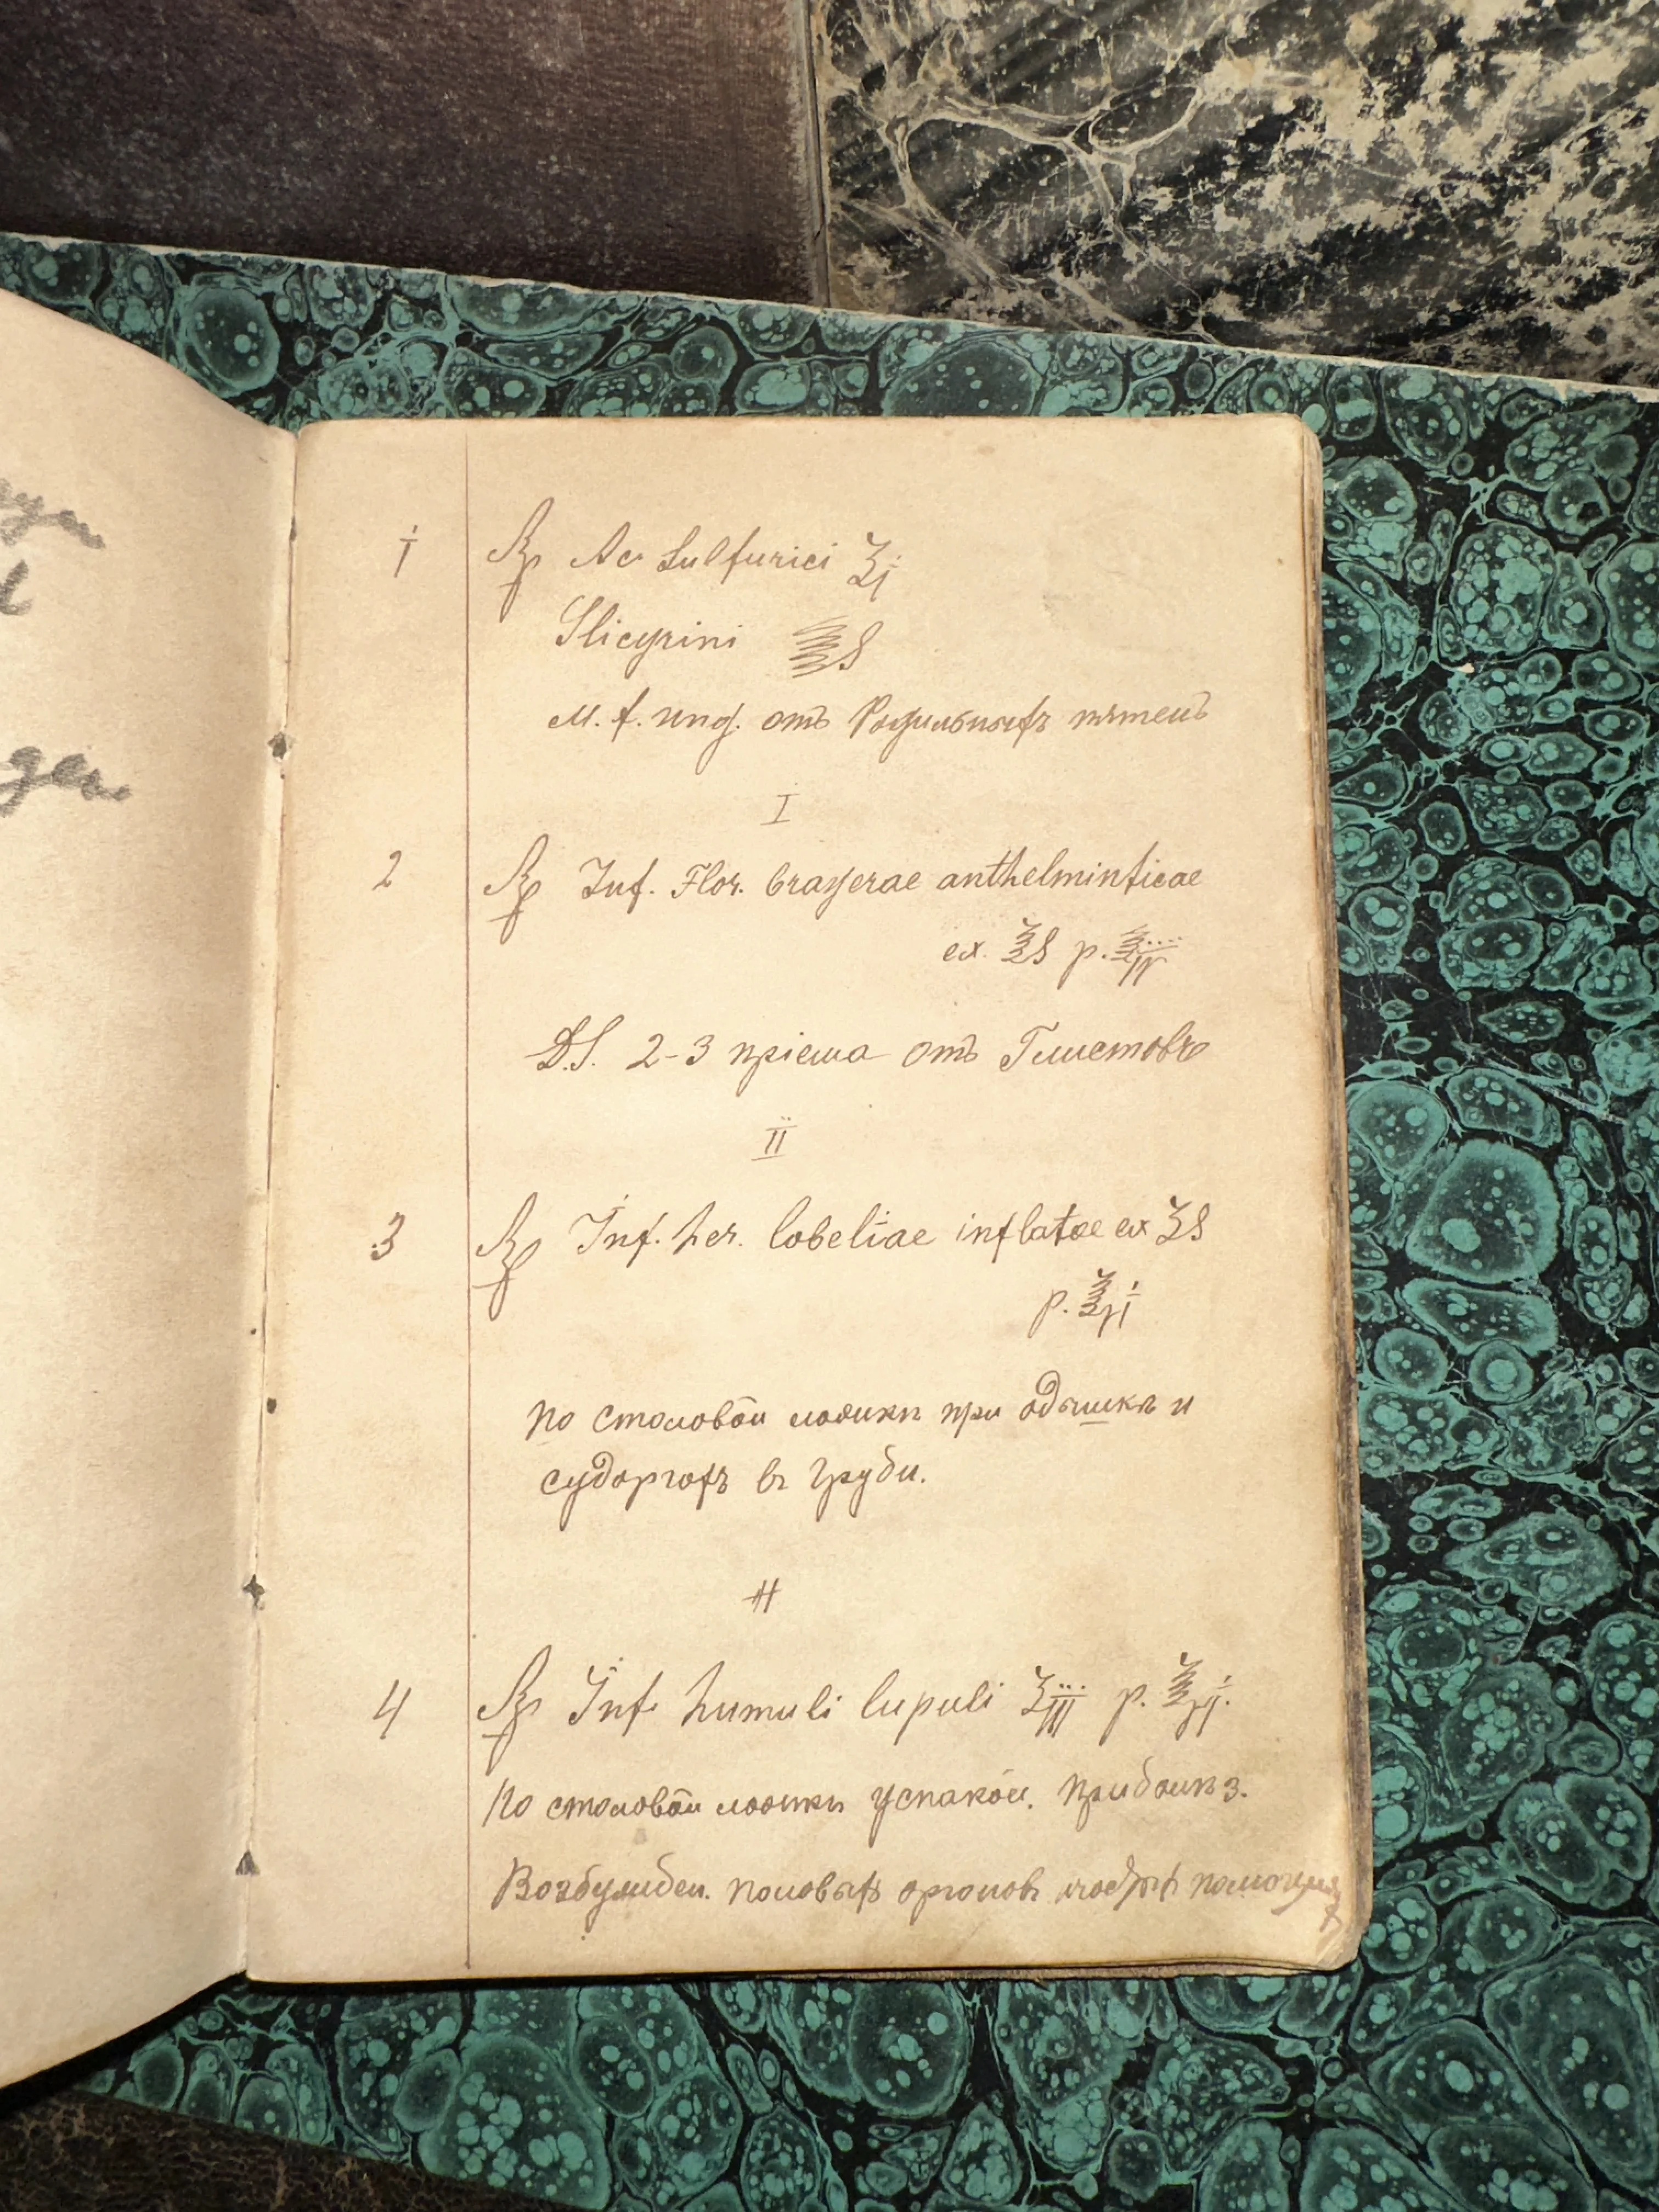 1 Rp Ac Sulfurici ʒj
Glicyrini ℥S
M. f. ung. отъ Родильныхъ пятенъ
I
2 Rp Inf. Flor. brayerae anthelminticae
ex. ℥S p. ℥IV
D.S. 2-3 пріема отъ Глистовъ
II
3 Rp Inf. her. lobeliae inflatae ex ʒS
p. ℥vj
по столовой ложкѣ при одышкѣ и
судоргахъ въ груди.
4 Rp Inf. humuli lupuli ʒiij p. ℥vj.
По столовой ложкѣ успакой. при болѣз.
Возбужден. половыхъ органовъ